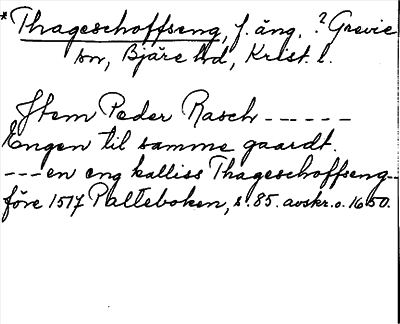 * Thageschoffseng, f. äng, ? Grevie
sn, Bjäre hd, Krist. l.
Jtem Peder Rasch ------
Engen til samme gaardt.
--- en eng kalliss Thageschoffseng --
före 1517 Palteboken, s. 85. avskr. o. 1650.